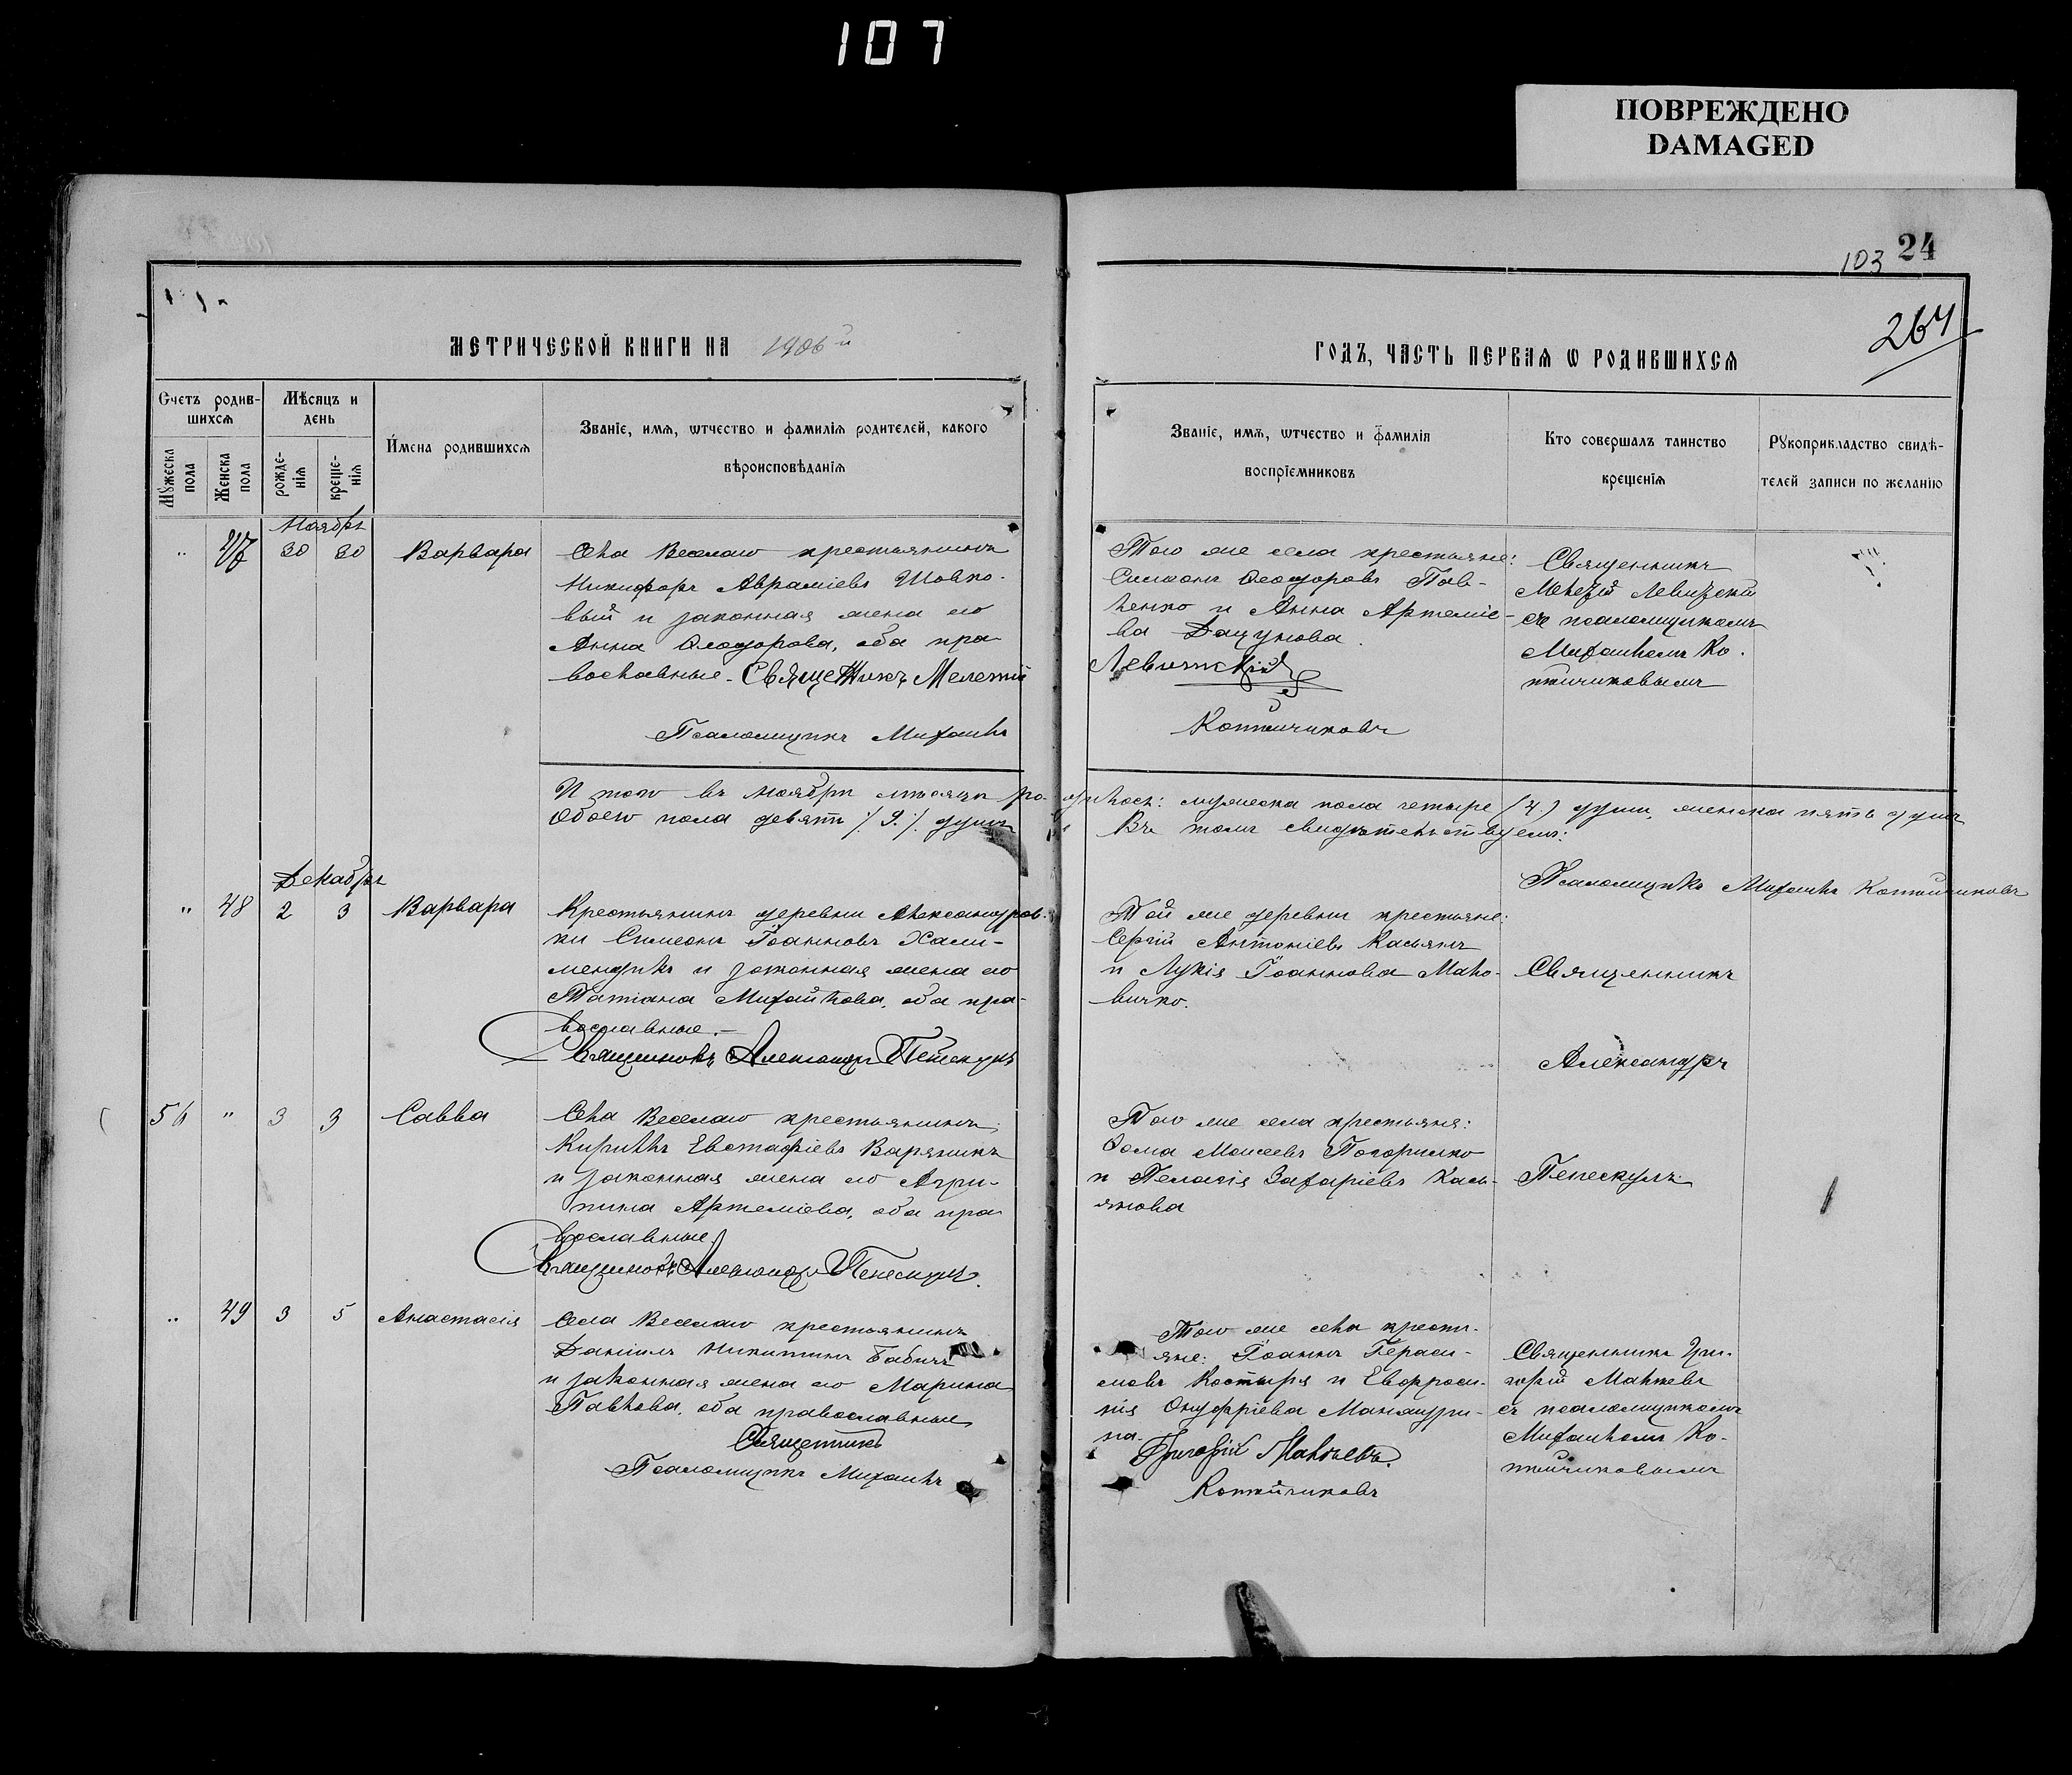 107
ПОВРЕЖДЕНО
DAMAGED
103 24
264
МЕТРИЧЕСКОЙ КНИГИ НА 1906й
ГОДЪ, ЧАСТЬ ПЕРВАѦ Ѡ РОДИВШИХСѦ
Счетъ родив-
шихсѧ
Мѣсяцъ и
день
Мꙋжеска
пола
Женска
пола
рожде-
нїѧ
креще-
нїѧ
Имена родившихсѧ
Званїе, имѧ, ѡтчество и фамилїѧ родителей, какого
вѣроисповѣданїѧ
Званїе, имѧ, ѡтчество и фамилїѧ
воспрїемниковъ
Кто совершалъ таинство
крещенїѧ
Рꙋкоприкладство свидѣ-
телей записи по желанїю
Ноябрь
" 47 30 30 Варвара
Села Веселаго крестьянинъ
Никифоръ Авраміевъ Шовко-
вый и законная жена его
Анна Ѳеодорова, оба пра
вославные. Священникъ Мелетій
Псаломщикъ Михаилъ
Того же села крестьяне:
Симеонъ Ѳеодоровъ Пав-
ленко и Анна Артеміе-
ва Дацунова.
Левитскій
Коптичиковъ
Священникъ
Мелетій Левитскій
съ псаломщикомъ
Михаиломъ Ко-
птичиковымъ
Итого въ ноябрѣ мѣсяцѣ ро- дилось: мужеска пола четыре (4) души, женска пять душъ
Обоего пола девять /9./ душъ
Въ томъ свидѣтельствуемъ:
Псаломщикъ Михаилъ Коптичиковъ
Декабрь
" 48 2 3 Варвара
Крестьянинъ деревни Александров-
ки Симеонъ Іоанновъ
и законная жена его
Татіана Михайлова, оба пра-
вославные.-
Священникъ Александръ
Той же деревни крестьяне:
Сергій Антоніевъ Касьянъ
и Лукія Іоаннова Мало-
вичко.
Священникъ
Александръ
56 " 3 3 Савва
Села Веселаго крестьянинъ
Кириллъ Евстафіевъ Варяникъ
и законная жена его Агри-
пина Артеміева, оба пра
вославные.
Священникъ Александръ
Того же села крестьяне:
Ѳома Моисеевъ
и Пелагія Захаріевъ Кась-
янова
Пепескулъ
" 49 3 5 Анастасія
Села Веселаго крестьянинъ
Даніилъ Никитинъ Бабичъ
и законная жена его Марина
Павлова, оба православные
Священникъ
Псаломщикъ Михаилъ
Того же села кресть-
яне: Іоаннъ Гераси-
мовъ Костыря и Евфроси-
нія Онуфріева Манжури-
на.
Григорій
Коптичиковъ
Священникъ Гри-
горій
съ псаломщикомъ
Михаиломъ Ко-
птичиковымъ